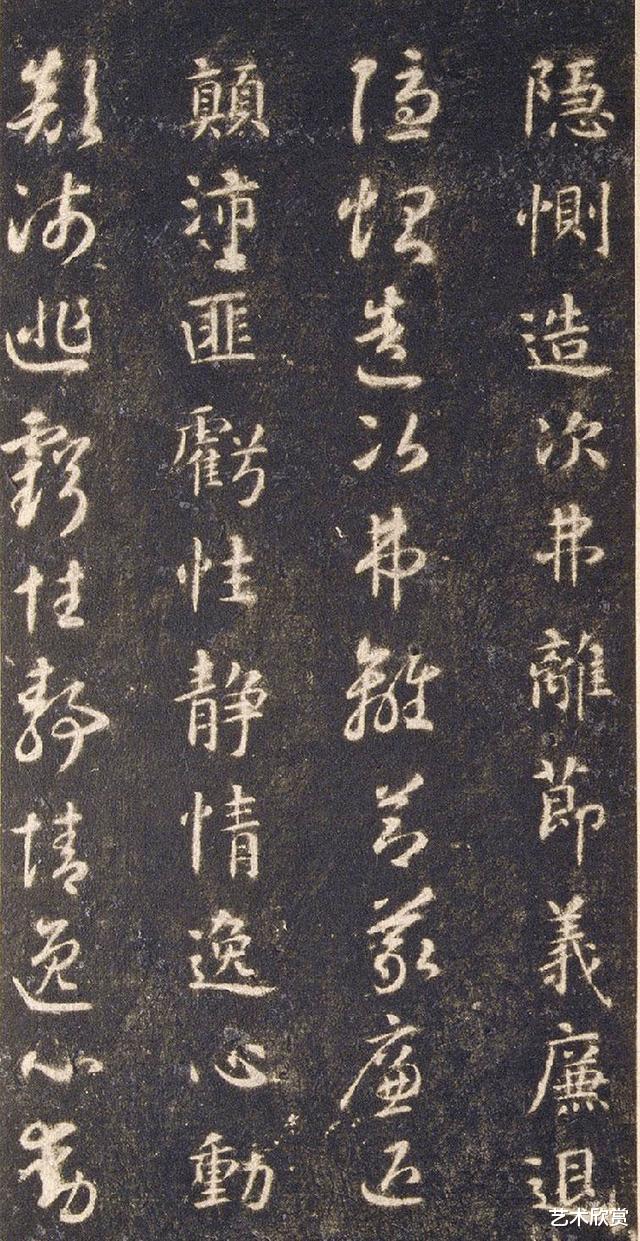 隱惻造次弗離節義廉退
隱惻造次弗離節義廉退
顛沛匪虧性静情逸心動
顛沛匪虧性静情逸心動
艺术欣赏